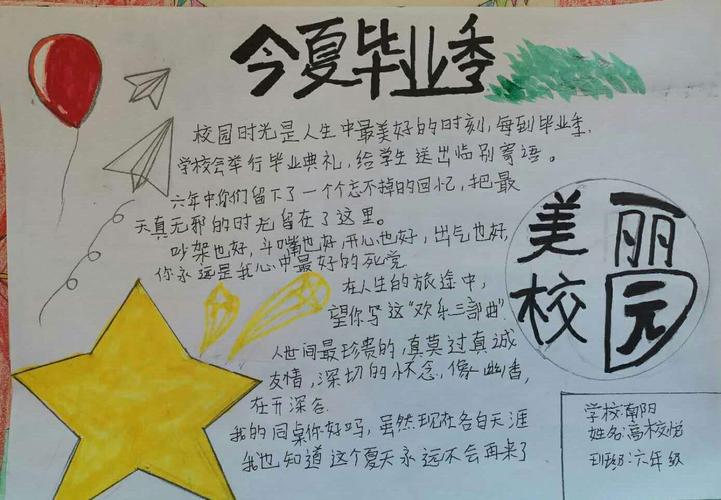 今夏毕业季
校园时光是人生中最美好的时刻,每到毕业季,
学校会举行毕业典礼,给学生送出临别寄语。
六年中你们留下了一个个忘不掉的回忆,把最
天真无邪的时光留在了这里。
吵架也好,斗嘴也好,开心也好,出气也好,
你永远是我心中最好的死党
在人生的旅途中,
望你写这“欢乐三部曲”.
人世间最珍贵的,真莫过真诚
友情,深切的怀念,像幽香,
在开深谷
我的同桌你好吗,虽然现在各自天涯
我也知道这个夏天永远不会再来了
美丽
校园
学校:朝阳
姓名:高校怡
班级:六年级